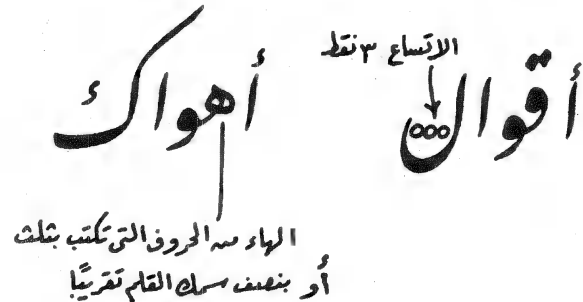 الاتساع ٣ نقط
أقوال
أهواك
الهاء من الحروف التى تكتب بثلث
أو بنصف سمك القلم تقريبًا